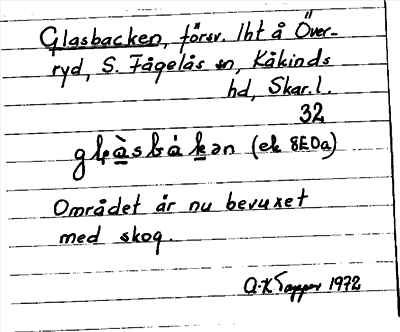 Glasbacken, försv. lht å Över-
ryd, S. Fågelås sn, Kåkinds
hd, Skar. l.
32
glàsbákən (ek 8EDa)
Området är nu bevuxet
med skog.
A-K Tapper 1972